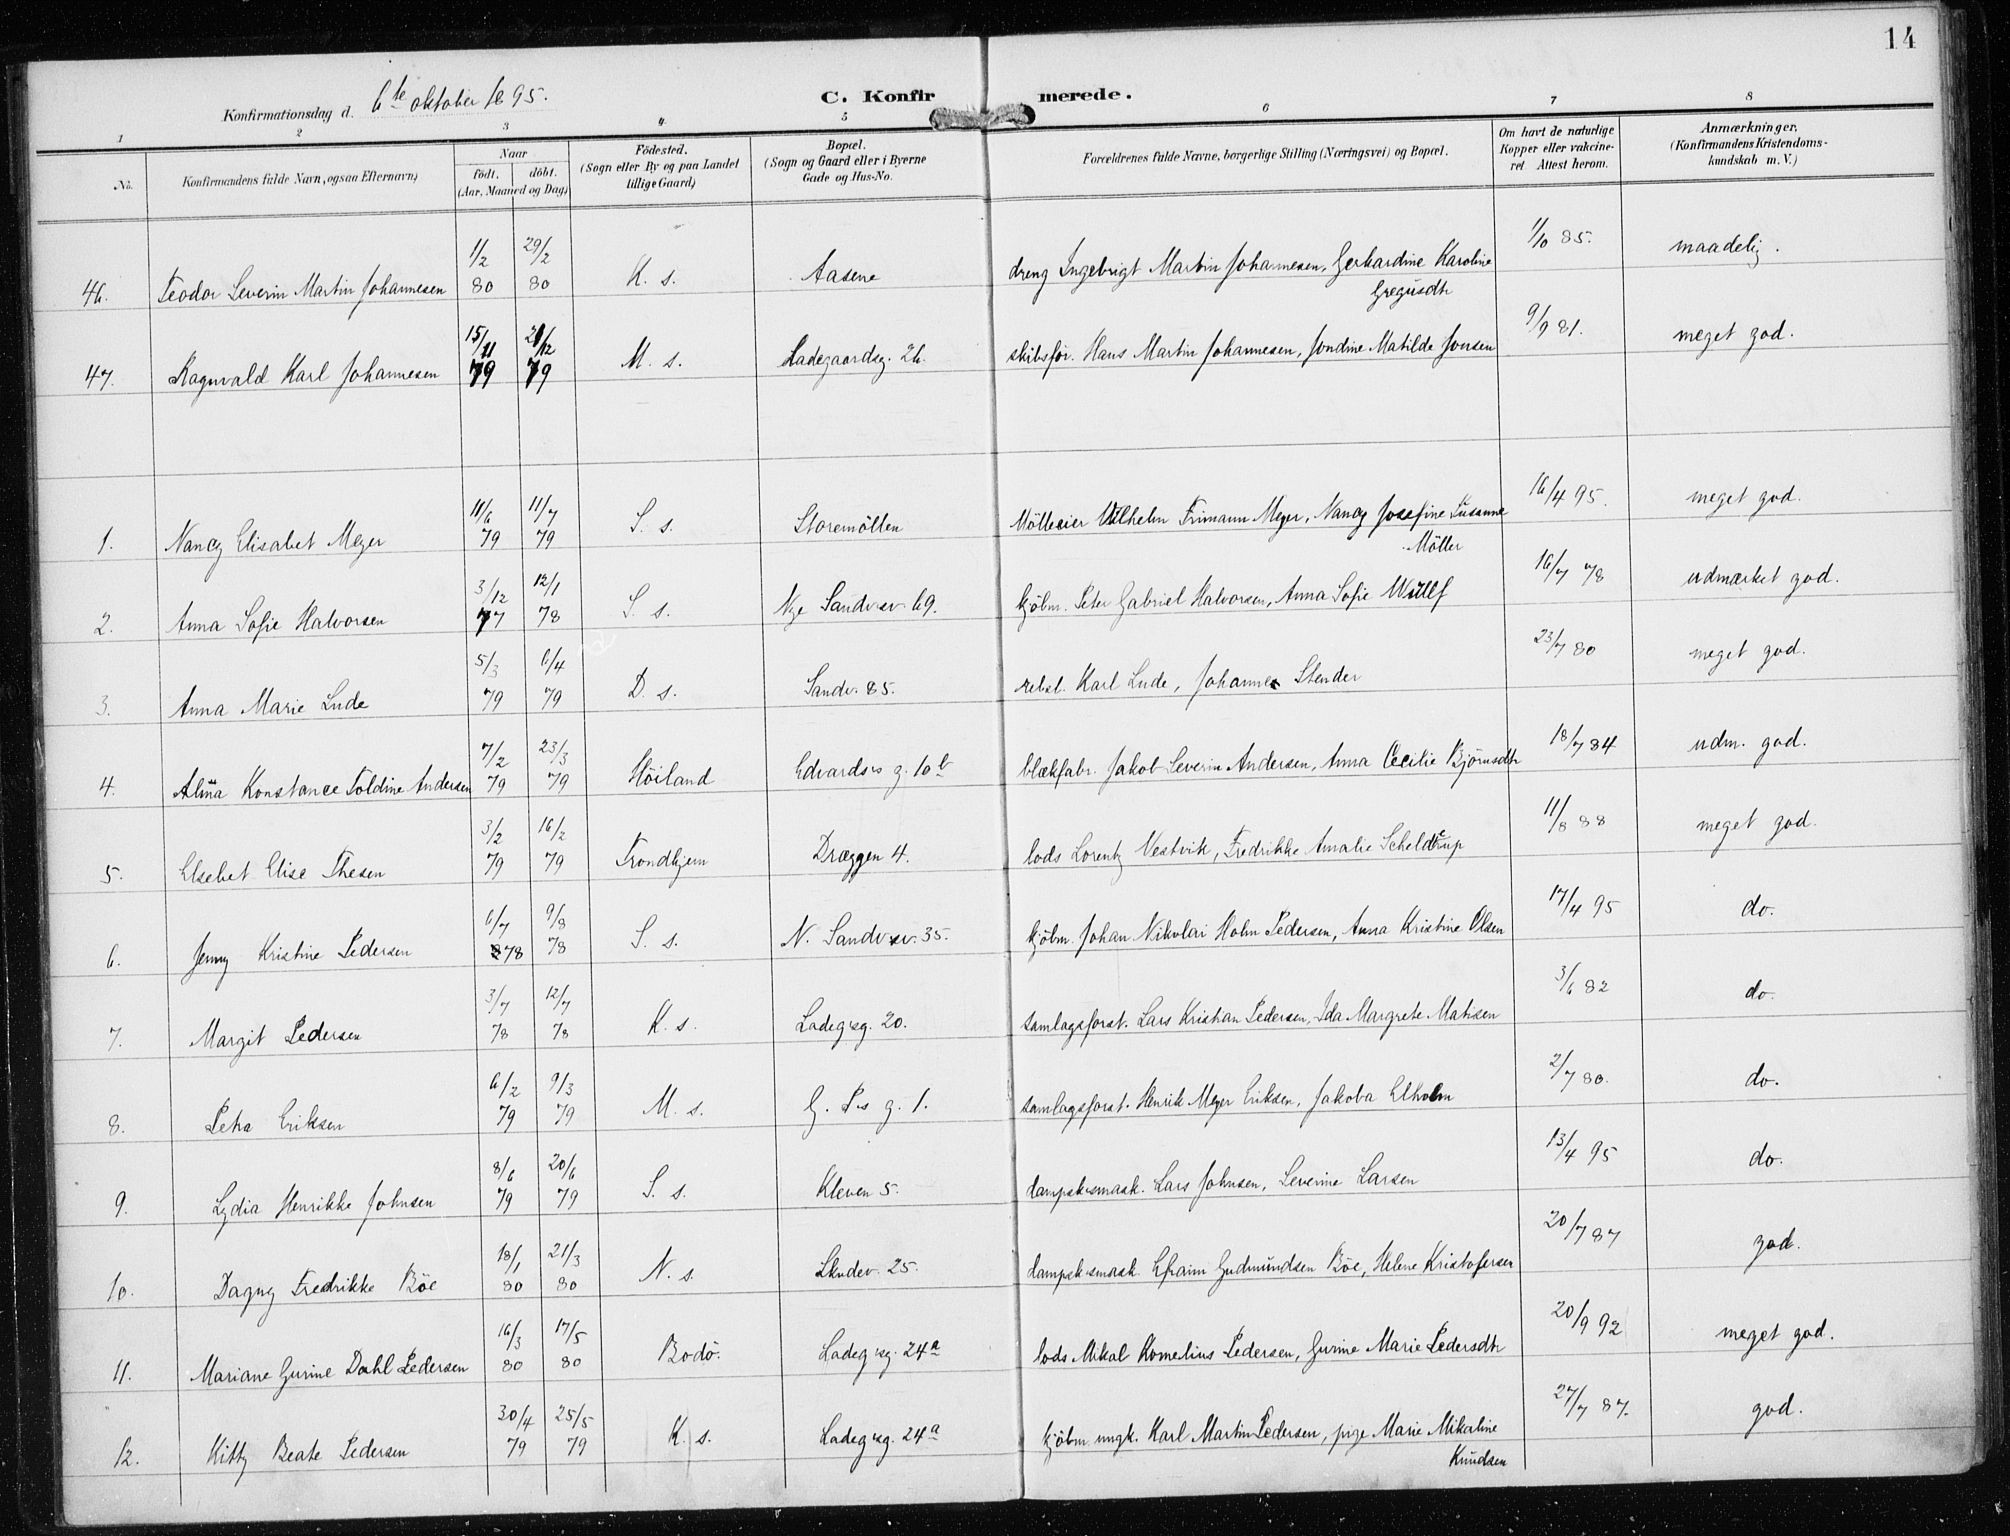 14
Konfirmationsdag d. 6te oktober 1895.
C. Konfirmerede.
1 2 3 4 5 6 7 8
No.
Konfirmandens fulde Navn, ogsaa Efternavn)
Naar
födt. döbt.
(Aar, Maaned og Dag)
Födested.
(Sogn eller By og paa Landet
tillige Gaard)
Bopæl.
(Sogn og Gaard eller i Byerne
Gade og Hus-No.
Forældrenes fulde Navne, borgerlige Stilling (Næringsvei) og Bopæl.
Om havt de naturlige
Kopper eller vakcine-
ret Attest herom.
Anmærkninger.
(Konfirmandens Kristendoms-
kundskab m. V.)
46. Teodor Severin Martin Johannesen 1/2 80 29/2 80 K. s. Aasene dreng Ingebrigt Martin Johannesen, Gerhardine Karoline 1/10 85. maadelig.
Gregusdtr
47. Ragnvald Karl Johannesen 15/11 79 21/12 79 M. s. Ladegaardsg. 26. skibsfør. Hans Martin Johannesen, Jondine Matilde Jonsen 9/9 81. meget god.
1. Nancy Elisabet Meyer 11/6 79 11/7 79 S. s. Storemöllen Mölleeier Vilhelm Frimann Meyer, Nancy Josefine Susanne 16/4 95. meget god.
Möller
2. Anna Sofie Halvorsen 3/12 77 12/1 78 S. s. Nye Sandvsv. 69. kjöbm. Peter Gabriel Halvorsen, Anna Sofie Wülff 16/7 78 udmærket god.
3. Anna Marie Lude 5/3 79 6/4 79 D. s. Sandv. 85. rebsl. Karl Lude, Johanne Stender 23/7 80 meget god.
4. Alma Konstance Toldine Andersen 7/2 79 23/3 79 Höiland Edvards g. 10b blækfabr. Jakob Severin Andersen, Anna Cecilie Björnsdtr 18/7 84 udm. god.
5. Elsebet Elise Thesen 3/2 79 16/2 79 Trondhjem Dræggen 4. lods Lorentz Vestvik, Fredrikke Amalie Scheldrup 11/8 88 meget god.
6. Jenny Kristine Pedersen 6/7 78 9/8 78 S. s. N. Sandvsv. 35. kjöbm. Johan Nikolai Holm Pedersen, Anna Kristine Olsen 17/4 95 do.
7. Margit Pedersen 3/7 78 12/7 78 K. s. Ladegsg. 20. samlagsforst. Lars Kristian Pedersen, Ida Margrete Matisen 3/6 82 do.
8. Petra Eriksen 6/2 79 9/3 79 M. s. G. P.s g. 1. samlagsforst. Henrik Meyer Eriksen, Jakoba Elholm 2/7 80. do.
9. Lydia Henrikke Johnsen 8/6 79 20/6 79 S. s. Kleven 5. dampsk.smask. Lars Johnsen, Severine Larsen 13/4 95 do.
10. Dagny Fredrikke Böe 18/1 80 21/3 80 N. s. Skudev. 25. dampsk.smask. Efraim Gudmundsen Böe, Helene Kristofersen 20/7 87 god.
11. Mariane Gurine Dahl Pedersen 16/3 80 17/5 80 Bodö. Ladegsg. 24a lods Mikal Kornelius Pedersen, Gurine Marie Pedersdtr 20/9 92 meget god.
12. Kitty Beate Pedersen 30/4 79 25/5 79 K. s. Ladegsg. 24a kjöbm. ungk. Karl Martin Pedersen, pige Marie Mikaline 27/7 87. god.
Knudsen